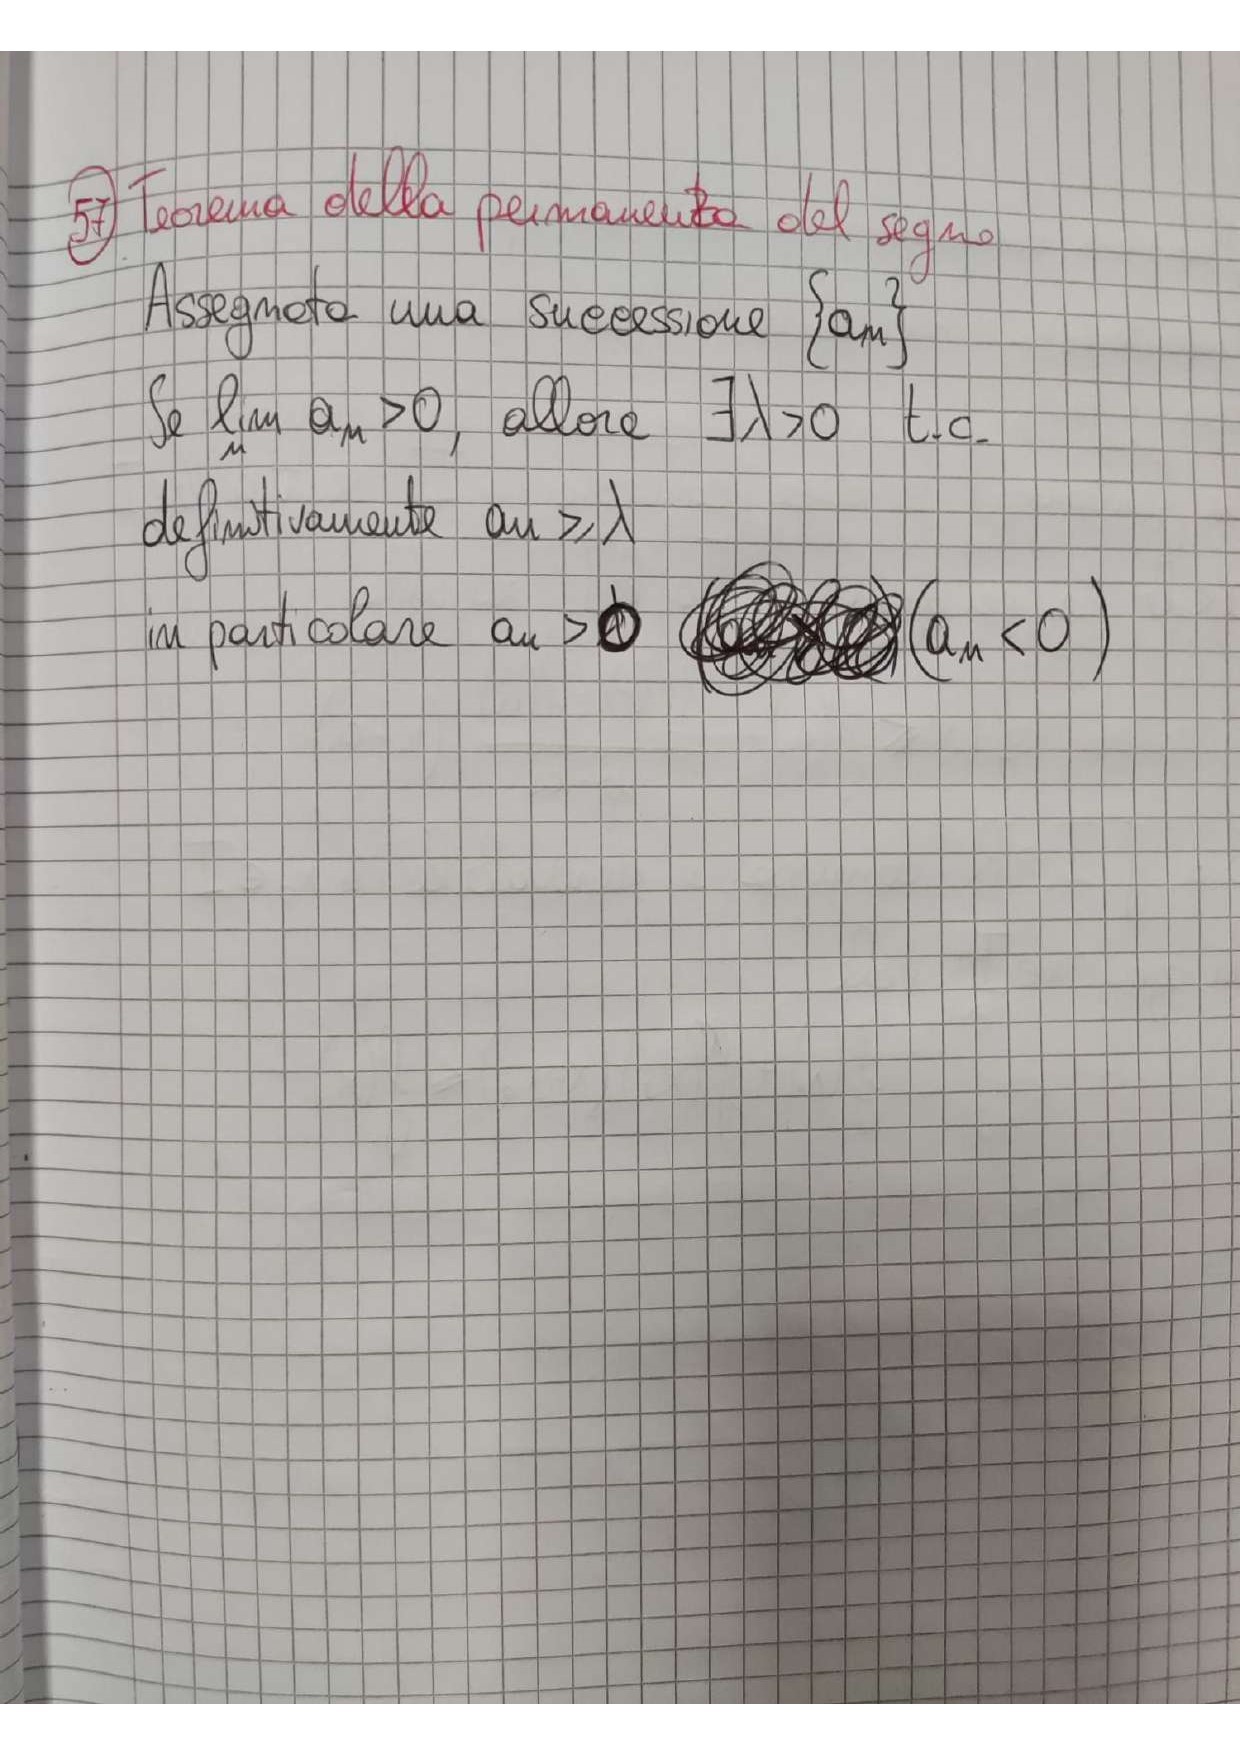 57) Teorema della permanenza del segno
Assegnata una successione {an}
Se lim an >0, allora ∃λ>0 t.c.
n
definitivamente an ≥ λ
in particolare an >0 (an <0)